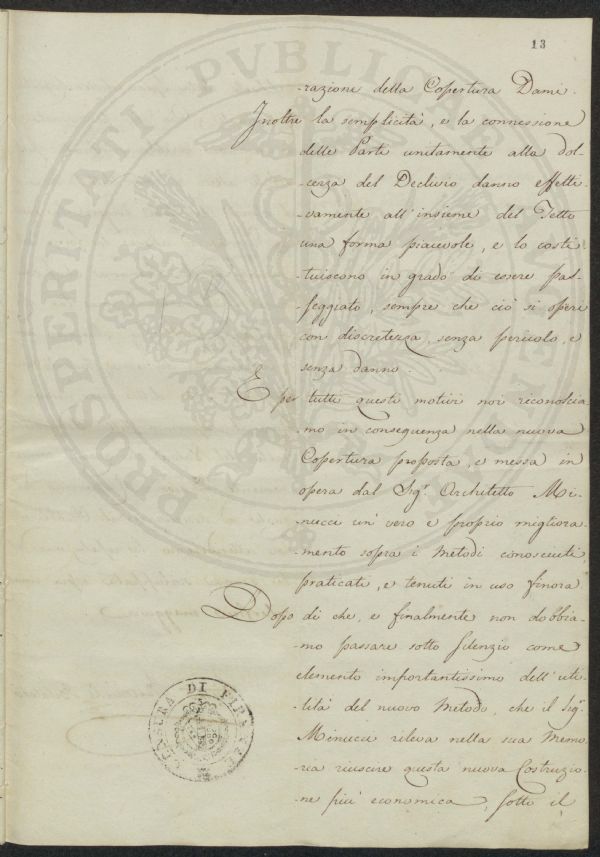 13
-razione della Copertura Dami.
Inoltre la semplicità, e la connessione
delle Parti unitamente alla dol-
-cezza del Declivio danno effetti-
-vamente all'insieme del Tetto
una forma piacevole, e lo costi-
-tuiscono in grado di essere pas-
-seggiato, sempre che ciò si operi
con discretezza, senza pericolo, e
senza danno.
E per tutti questi motivi noi riconoscia-
-mo in conseguenza nella nuova
Copertura proposta, e messa in
opera dal Sigr. Architetto Mi-
nucci un' vero e proprio migliora-
-mento sopra i Metodi conosciuti,
praticati, e tenuti in uso finora
Dopo di che, e finalmente non dobbia-
-mo passare sotto silenzio come
elemento importantissimo dell'uti-
-lità del nuovo Metodo, che il Sigr.
Minucci rileva nella sua Memo-
-ria riuscire questa nuova Costruzio-
-ne più economica, sotto il
PROSPERITATI PVBLICAE